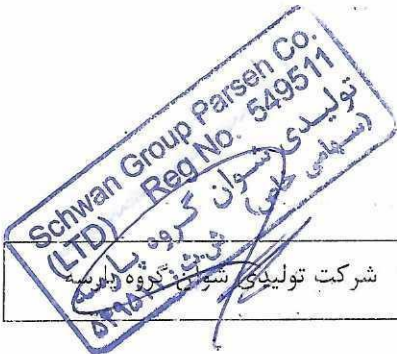 Schwan Group Parseh Co.
(LTD) Reg No. 549511
تولیدی شوان گروه پارسه
(سهامی خاص)
ش.ثبت: ۵۴۹۵۱۱
شرکت تولیدی شوان گروه پارسه